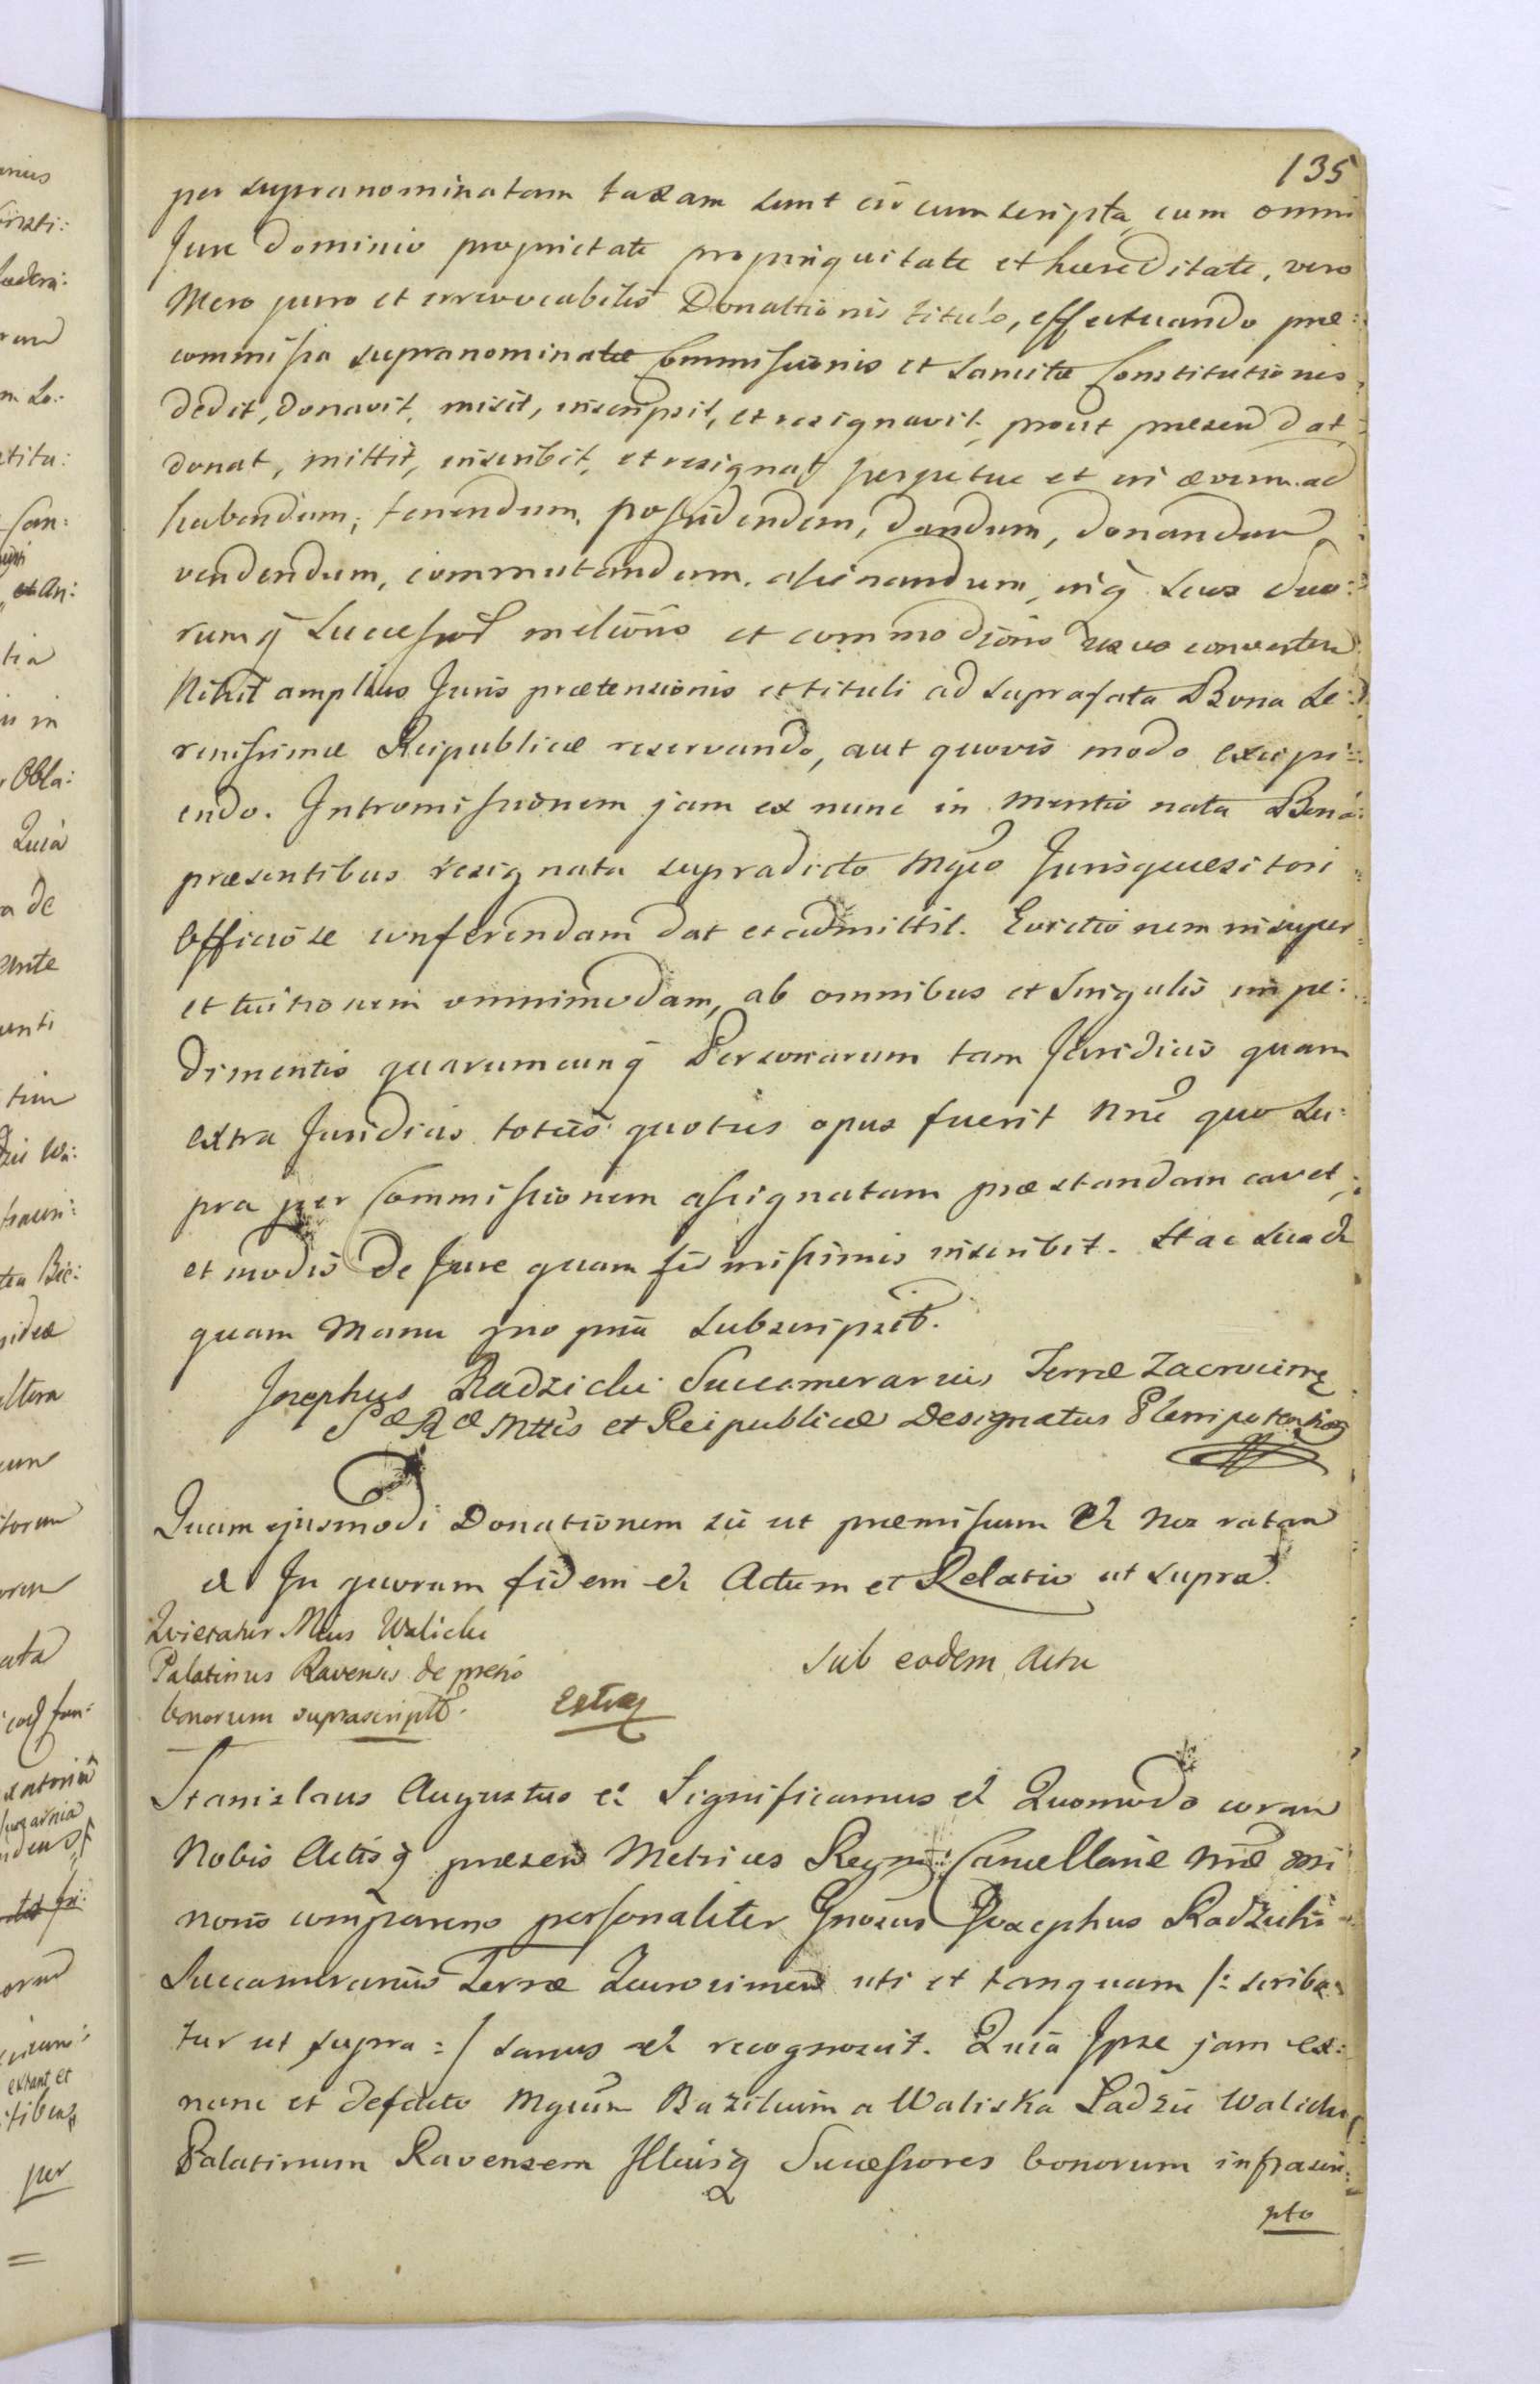 135
per supranominatam taxam sunt circumscripta, cum omni
Jure Dominio proprietate propinquitate et hæreditate, vero
Mero puro et irrevocabilis Donationis titulo, effectuando præ:
commissa supranominatæ Commissionis et sancitæ Constitutionis
dedit, donavit, misit, inscripsit, et resignavit, prout præsen dat
donat, mittit, inscribit, et resignat perpetue et in ævum. ad
habendum, tenendum, possidendum, dandum, donandum
vendendum, commutandum, alienandum, inq suos suo:
rumq Success meliōris et commodiōris usus convertend
Nihil amplius Juris prætensionis et tituli ad suprafata Bona Se:
renissimæ Reipublicæ reservando, aut quovis modo excipi:
endo. Intromissionem jam ex nunc in mentio nata Bona
præsentibus resignata supradicto Mgco Jurisquæsitori
officiose conferendam dat et admittit. Evictionem insuper
et tuitionem omnimodam, ab omnibus et singulis impe:
dimentis quarumcunq Personarum tam Juridicis quam
extra Juridicis toties quoties opus fuerit nne quo su:
pra per Commissionem assignatam præstandam cavet,
et modis de Jure quam firmissimis inscribit. Hac sua &
quam manu pro pria subscripsit.
Josephus Radzicki Succamerarius Terræ Zacrocims
Sæ Ræ Mttis et Reipublicæ Designatus Plenipotentiar
Quam ejusmodi Donationem sic ut præmissum & Nos ratam
& In quorum fidem & Actum et Relatio ut supra.
Quietatur Mcus Walicki
Palatinus Ravensis de pretio
bonorum suprascript.
Sub eodem Actu
Extra
Stanislaus Augustus & Significamus & Quomodo coram
Nobis Actisq præsen Metrices Regni Cancellariæ nræ mi
noris comparens personaliter Gnosus Josephus Radzicki
Succamerarius Terræ Zacrocimen uti et tanquam /: scriba
tur ut supra :/ sanus & recognovit. Quia Ipse jam ex:
nunc et defacto Mgcum Bazilium a Waliska Ladzic Walicki
Palatinum Ravensem Illiusq Successores bonorum infrascri:
pto